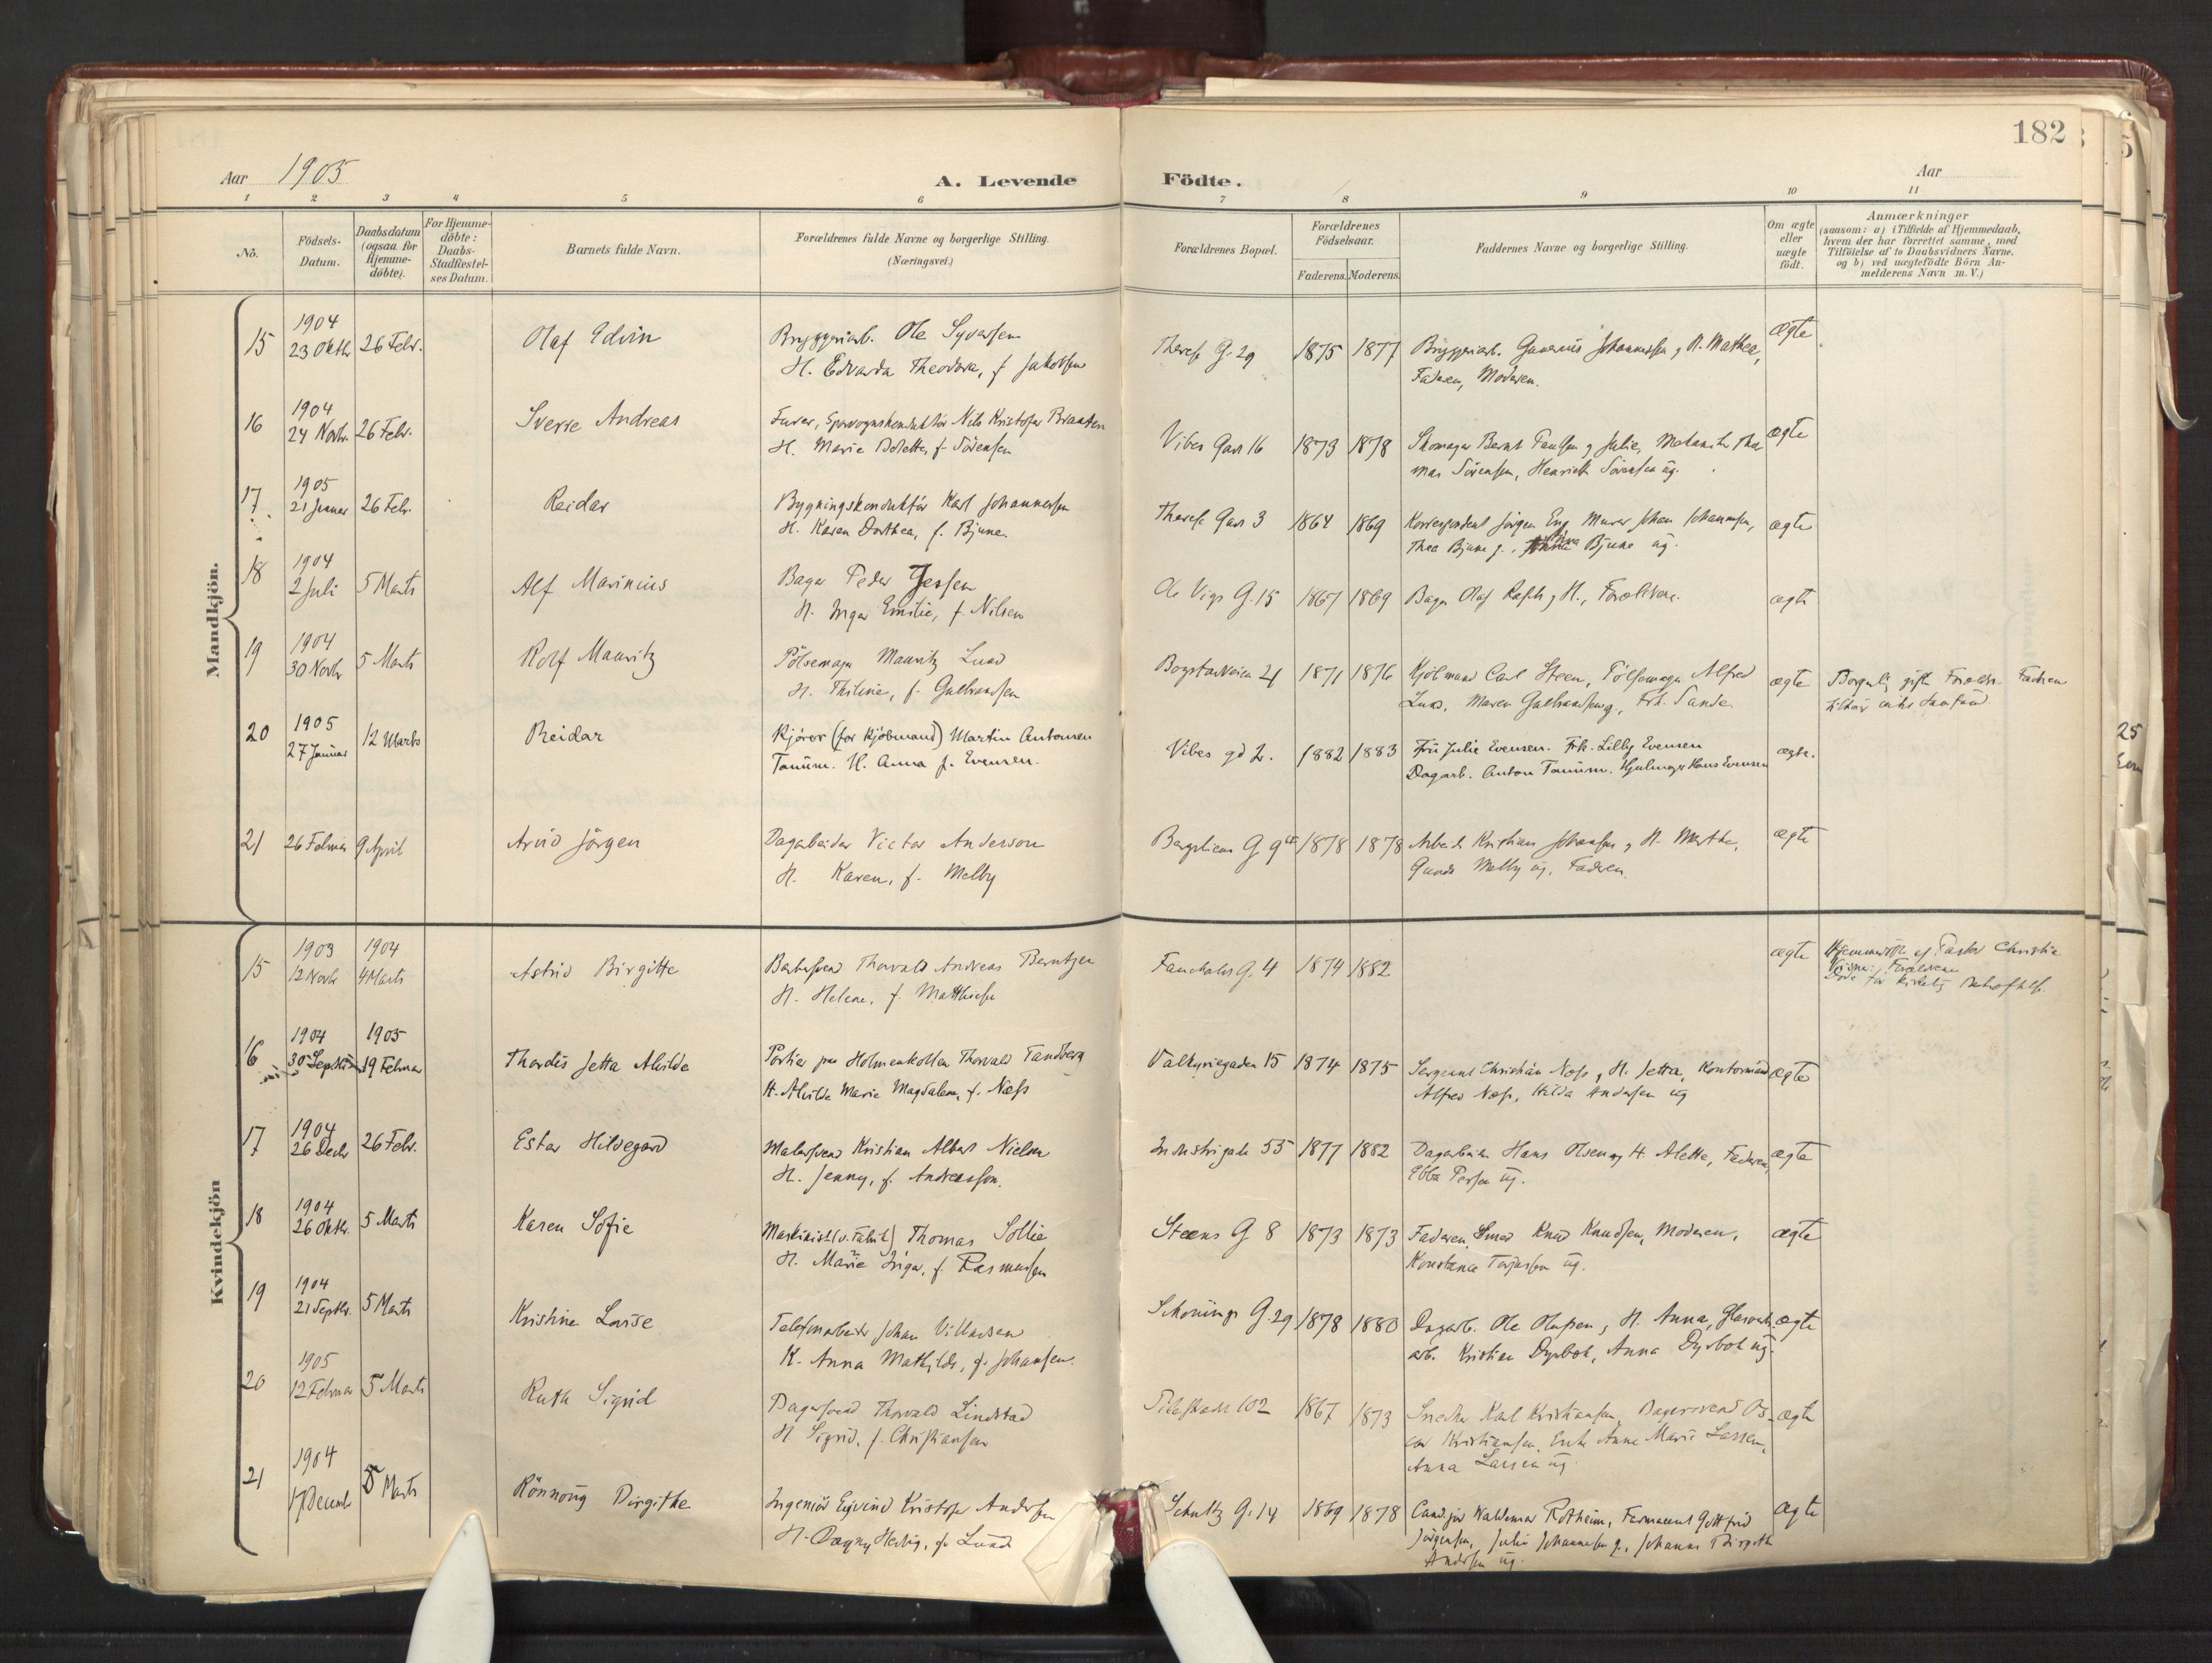 182
Aar 1905
A. Levende Födte.
Aar
1 2 3 4 5 6 7 8 9 10 11
No.
Födsels-
Datum.
Daabsdatum
(ogsaa for
Hjemme-
döbte).
For Hjemme-
döbte:
Daabs-
Stadfæstel-
ses Datum.
Barnets fulde Navn.
Forældrenes fulde Navne og borgerlige Stilling.
(Næringsvei.)
Forældrenes Bopæl.
Forældrenes
Födselsaar.
Faderens. Moderens.
Faddernes Navne og borgerlige Stilling.
Om ægte
eller
uægte
födt.
Anmærkninger
(saasom: a) i Tilfælde af Hjemmedaab,
hvem der har forrettet samme, med
Tilföielse af to Daabsvidners Navne.
og b) ved uægtefödte Börn An-
melderens Navn m. V.)
Mandkjön.
15 1904
23 Oktbr 26 Febr. Olaf Edvin Bryggeriarb. Ole Syversen
H. Edvarda Theodora, f. Jakobsen
Therese G. 29 1875 1877 Bryggeriarb. Gunerius Johannessen g H. Mathea,
Faderen, Moderen.
ægte
16 1904
24 Novbr. 26 Febr. Sverre Andreas Furer, Sporvognskonduktör Nils Kristofer Braaten
H. Marie Bolette, f. Sörensen
Vibes Gade 16 1873 1878 Skomager Bernt Paulsen g Julie, Mekaniker Tho
mas Sörensen, Henriette Sörensen ug.
ægte
17 1905
21 Januar 26 Febr. Reidar Bygningskonduktör Karl Johannesen
H. Karen Dorthea, f. Bjune.
Therese Gade 3 1864 1869 Korrespondent Jörgen Eng, Murer Johan Johannesen,
Thea Bjune g., Anna Bjune ug.
ægte
18 1904
2 Juli 5 Marts Alf Marinius Bager Peder Jensen
H. Inga Emilie, f. Nilsen
Ole Vigs G. 15 1867 1869 Bager Olaf g H., Forældrene.
ægte
19 1904
30 Novbr 5 Marts Rolf Mauritz Pölsemager Mauritz Lund
H. Thiline, f. Gulbrandsen
Bogstadveien 21 1871 1876 Kjölmand Carl Steen, Pölsemager Alfred
Lund, Maren Gulbrandsen g., Frk. Sande
ægte
Borgerlig gifte Forældre. Faderen
tilhörer intet Samfund.
20 1905
27 Januar 12 Marts Reidar Kjörer (for Kjöbmand) Martin Antonsen
Tanum. H. Anna f. Evensen.
Vibes gd 2. 1882 1883 Fru Julie Evensen. Frk. Lilly Evensen
Dagarb. Anton Tanum. Hjulmager Hans Evensen
ægte.
21 26 Februar 9 April Arvid Jörgen Dagarbeider Victor Anderson
H. Karen, f. Melby
Bergslien G 9 1878 1878 Arbeider Kristian Johansen g H. Marthe,
Gunda Melby ug. Faderen.
ægte
Kvindekjön
15 1903 1904
12 Novbr 4 Marts Astrid Birgitte Barbersvend Thorvald Andreas Berntzen
H. Helene, f. Mathiesen
Fauchalds G. 4 1874 1882
ægte Hjemmedöbt af Pastor Christie
Vidner: Forældrene
Döde för kirkelig Bekræftelse.
16 1904 1905
30 Septbr 19 Februar Thordis Jetta Alvilde Portier paa Holmenkollen Thorvald Tandberg
H. Alvilde Marie Magdalene, f. Næss
Valkyriegaden 15 1874 1875 Sergeant Christian Næss g H. Jetta, Kontormand
Alfred Næss, Hilda Andersen ug
ægte
17 1904
26 Decbr 26 Febr. Ester Hildegard Malersvend Kristian Albert Nielsen
H. Jenny, f. Andreasson.
Industrigade 55 1877 1882 Dagarbeider Hans Olsen g H. Alette, Faderen,
Ebba Person ug.
ægte
18 1904
26 Oktbr. 5 Marts Karen Sofie Maskinist (v. Fabrik) Thomas Sollie
H. Marie Inga, f. Rasmussen
Steens G 8 1873 1873 Faderen, Smed Knud Knudsen, Moderen,
Konstance Torjussen ug.
ægte
19 1904
21 Septbr. 5 Marts Kristine Lovise Telefonarbeider Johan Villadsen
H. Anna Mathilde, f. Johansen.
Schönings G. 29 1878 1880 Dagarb. Ole Olufsen g H. Anna, Glasverks
arb. Kristian Dyrbok, Anna Dyrbok ug.
ægte
20 1905
12 Februar 5 Marts Ruth Sigrid Bagersvend Thorvald Lindstad
H. Sigrid, f. Christiansen
Pilestræde 102 1867 1873 Snedker Karl Kristiansen, Bagersvend Os-
car Kristiansen, Enke Anne Marie Larsen,
Anna Larsen ug.
ægte
21 1904
17 Decembr 5 Marts Rönnoug Birgithe Ingeniör Eyvind Kristofer Andersen
H. Dagny Hedvig, f. Lund
Schultz G. 14 1869 1878 Cand. jur Waldemar Rotheim, Farmaceut Gottfred
Jörgensen, Julie Johannesen g., Johanne Birgith
Andersen ug.
ægte
25